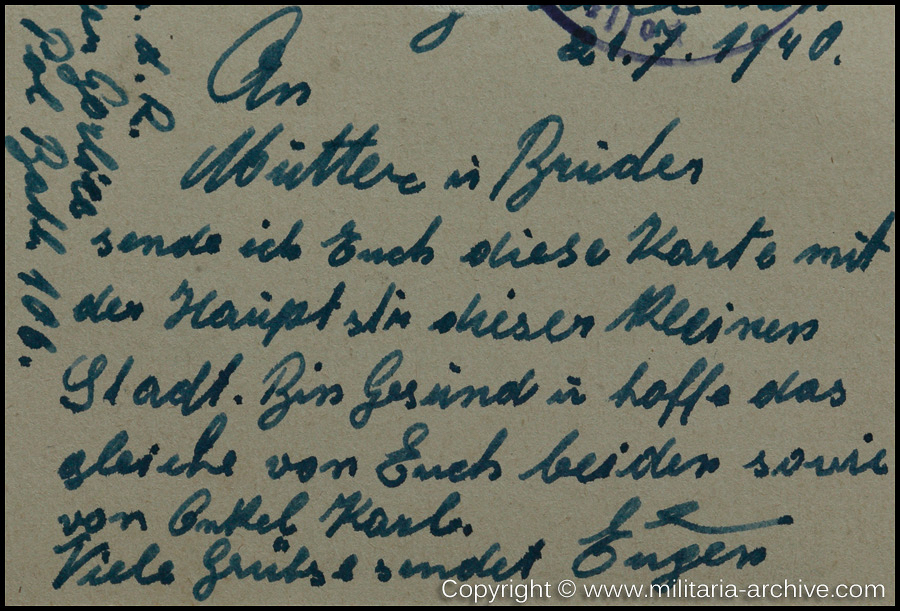 21.7.1940.
An
Mütter ü Brüder
sende ich Euch diese Karte mit
der Haüptstr dieser Kleinen
Stadt. Bin Gesünd ü hoffe das
gleiche von Euch beiden sowie
von Onkel Karl.
Viele Grüße sendet Eugen
Pol Batl 106.
Copyright © www.militaria-archive.com